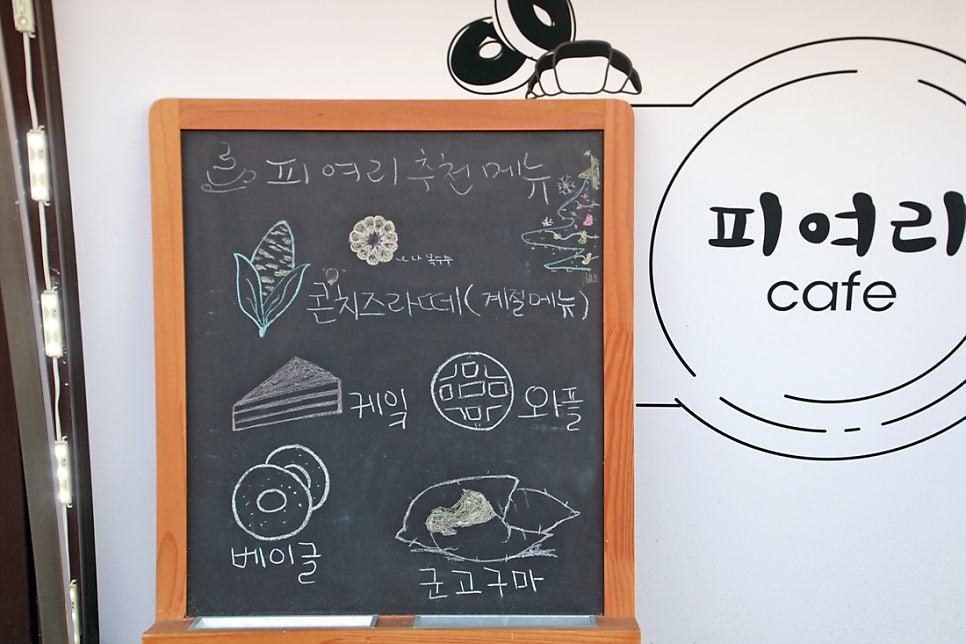 피여리 추천메뉴
콘치즈라떼(계절메뉴)
케잌
와플
베이글
군고구마
피여리
cafe